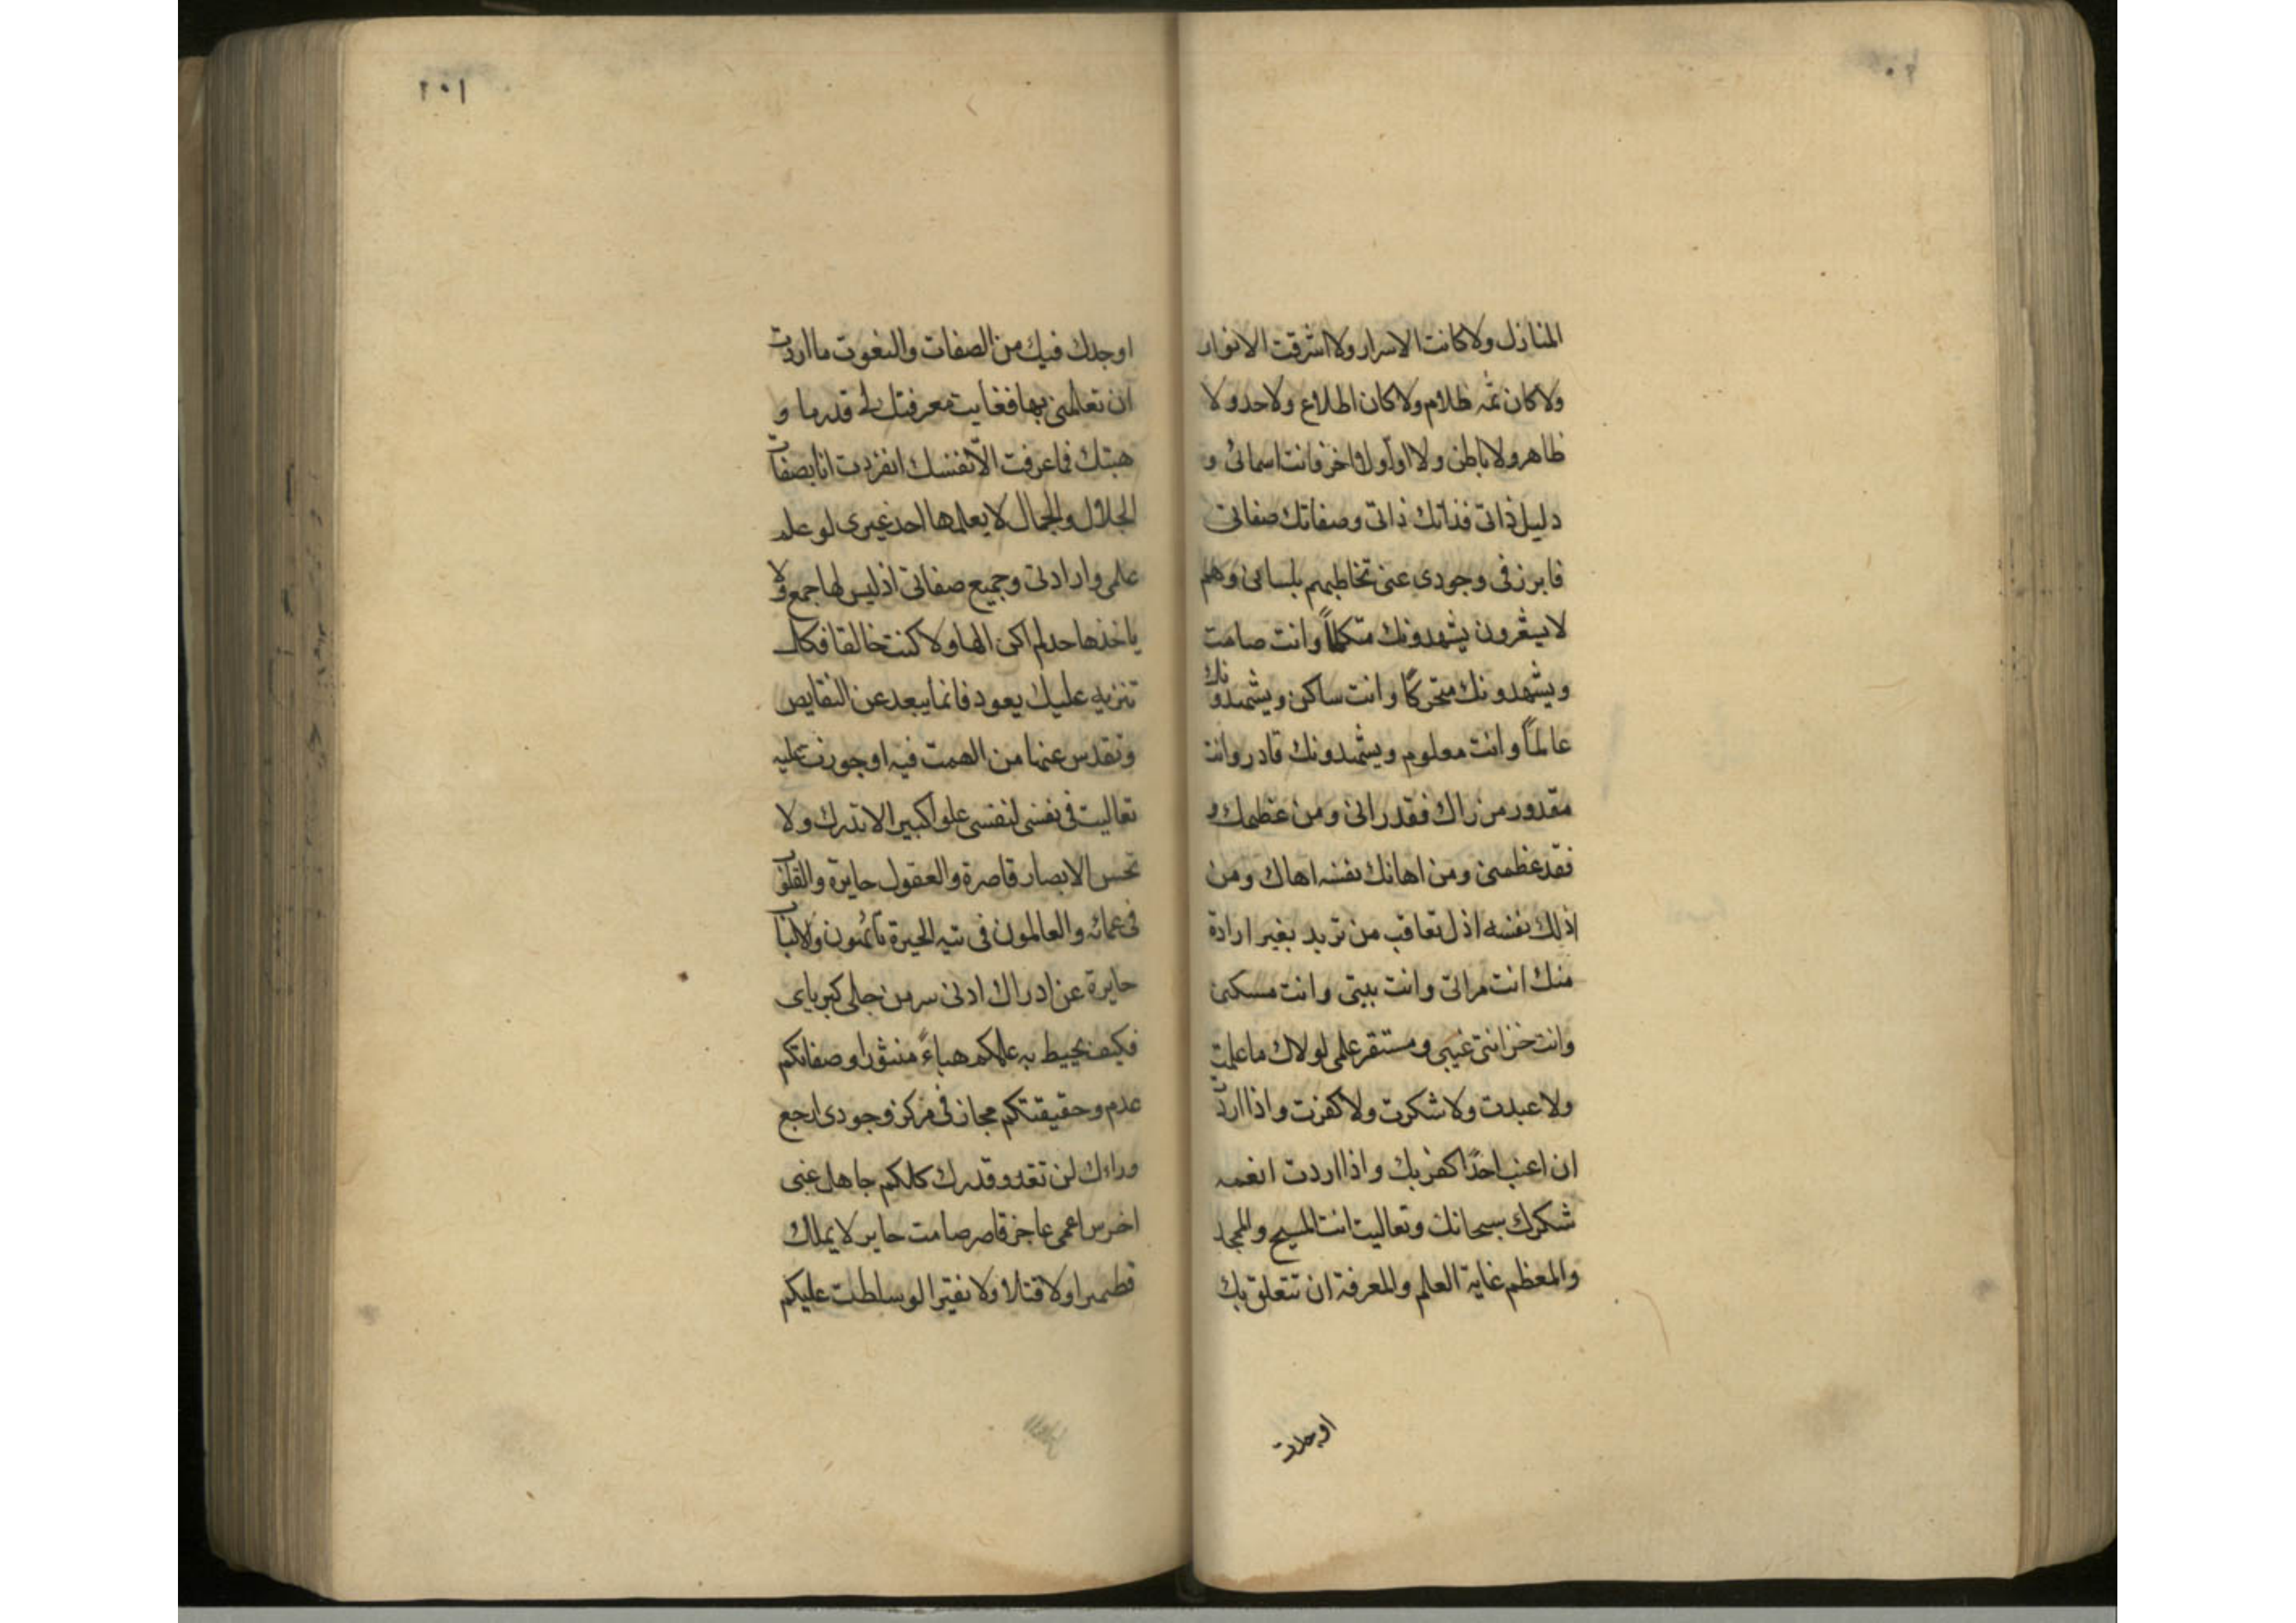 المنازل ولا كانت الاسرار ولا اشرقت الانوار
ولا كان ثمه ظلام ولا كان اطلاع ولا حد ولا
ظاهر ولا باطن ولا اول ولا اخر فانت اسمائى و
دليل ذاتى فذاتك ذاتى وصفاتك صفاتى
فابرز فى وجودى عنى تخاطبهم بلسانى وهم
لا يشعرون يشهدونك متكلماً وانت صامت
ويشهدونك متحركاً وانت ساكن ويشهدونك
عالماً وانت معلوم ويشهدونك قادر وانت
مقدور من راك فقد رانى ومن عظمك
فقد عظمنى ومن اهانك نفسه اهاك ومن
اذلك نفسه اذل تعاقب من تريد بغير ارادة
منك انت مراتى وانت بيتى وانت مسكنى
وانت خزانتى غيبى ومستقر علمى لولاك ما علمت
ولا عبدت ولا شكرت ولا كفرت واذا اردت
ان اعذب احدًا كفر بك واذا اردت انعمه
شكرك سبحانك وتعاليت انت المسبح والمجد
والمعظم غاية العلم والمعرفة ان تتعلق بك
اوجدت
٢٠١
اوجدك فيك من الصفات والنعوت ما اردت
ان تعالمنى بها فغايت معرفتك لى قدر ما و
هبتك فما عرفت الا نفسك انفردت انا بصفات
الجلال والجمال لا يعلمها احد غيرى لو علم
علمى وارادتى وجميع صفاتى اذ ليس لها جمع ولا
ياخذها حد لم اكن الها ولا كنت خالقا فكل
تنزيه عليك يعود فانما يبعد عن النقايص
وتقدس عنها من الهمت فيه او جوزت عليه
تعاليت فى نفسى لنفسى علوا كبيرا لا تدرك ولا
تحس الابصار قاصرة والعقول حايرة والقلوب
فى عمائه والعالمون فى تيه الحيرة تائهون والالباب
حايرة عن ادراك ادنى سر من جلى كبرياى
فكيف تحيط به علمكم هباءً منثورا وصفاتكم
عدم وحقيقتكم مجاز فى مركز وجودى ارجع
وراءك لن تعدو قدرك كلكم جاهل غبى
اخرس اعمى عاجز قاصر صامت حاير لا يملك
قطميرا ولا فتيلا ولا نقيرا لو سلطت عليكم